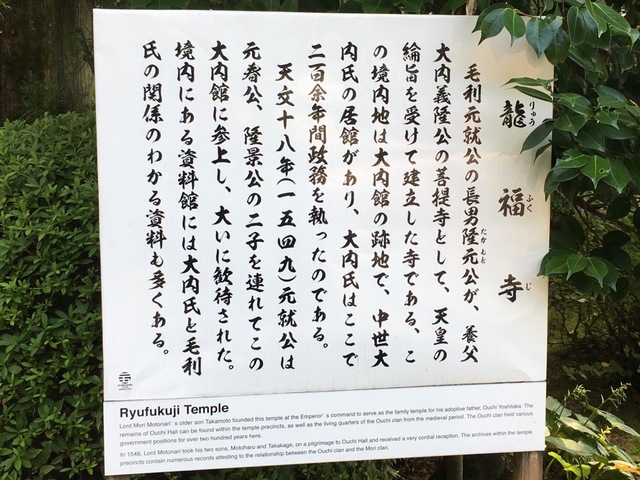 龍福寺
りゅう ふく じ
毛利元就公の長男隆元公が、養父
たか もと
大内義隆公の菩提寺として、天皇の
綸旨を受けて建立した寺である、こ
の境内地は大内館の跡地で、中世大
内氏の居館があり、大内氏はここで
二百余年間政務を執ったのである。
天文十八年(一五四九)元就公は
元春公、隆景公の二子を連れてこの
大内館に参上し、大いに歓待された。
境内にある資料館には大内氏と毛利
氏の関係のわかる資料も多くある。
Ryufukuji Temple
Lord Mori Motonari's older son Takamoto founded this temple at the Emperor's command to serve as the family temple for his adoptive father, Ouchi Yoshitaka. The
remains of Ouchi Hall can be found within the temple precincts, as well as the living quarters of the Ouchi clan from the medieval period. The Ouchi clan held various
government positions for over two hundred years here.
In 1549, Lord Motonari took his two sons, Motoharu and Takakage, on a pilgrimage to Ouchi Hall and received a very cordial reception. The archives within the temple
precincts contain numerous records attesting to the relationship between the Ouchi clan and the Mori clan.